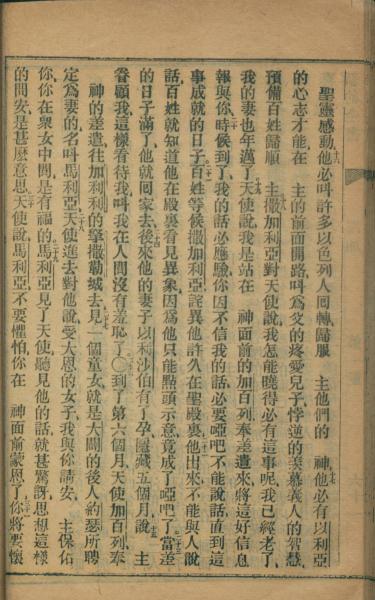 聖靈感動他必叫許多以色列人回轉歸服 主他們的 神他必有以利亞
的心志才能在 主的前面開路叫爲父的疼愛兒子悖逆的羨慕義人的智慧
預備百姓歸順 主撒加利亞對天使說我怎能曉得必有這事呢我已經老了
我的妻也年邁了天使說我是站在 神面前的加百列奉差遣來將這好信息
報與你時候到了我的話必應驗你因不信我的話必要啞吧不能說話直到這
事成就的日子百姓等候撒加利亞詫異他許久在聖殿裏他出來不能與人說
話百姓就知道他在殿裏看見異象因爲他只能點頭示意竟成了啞吧了當差
的日子滿了他就回家去後來他的妻子以利沙伯有了孕隱藏五個月說 主
眷顧我這樣看待我叫我在人間沒有羞恥了〇到了第六個月天使加百列奉
神的差遣往加利利的拏撒勒城去見一個童女就是大闢的後人約瑟所聘
定爲妻的名叫馬利亞天使進去對他說受大恩的女子我與你請安 主保佑
你你在衆女中間是有福的馬利亞見了天使聽見他的話就甚驚訝思想這樣
的問安是甚麽意思天使說馬利亞不要懼怕你在 神面前蒙恩了你將要懷